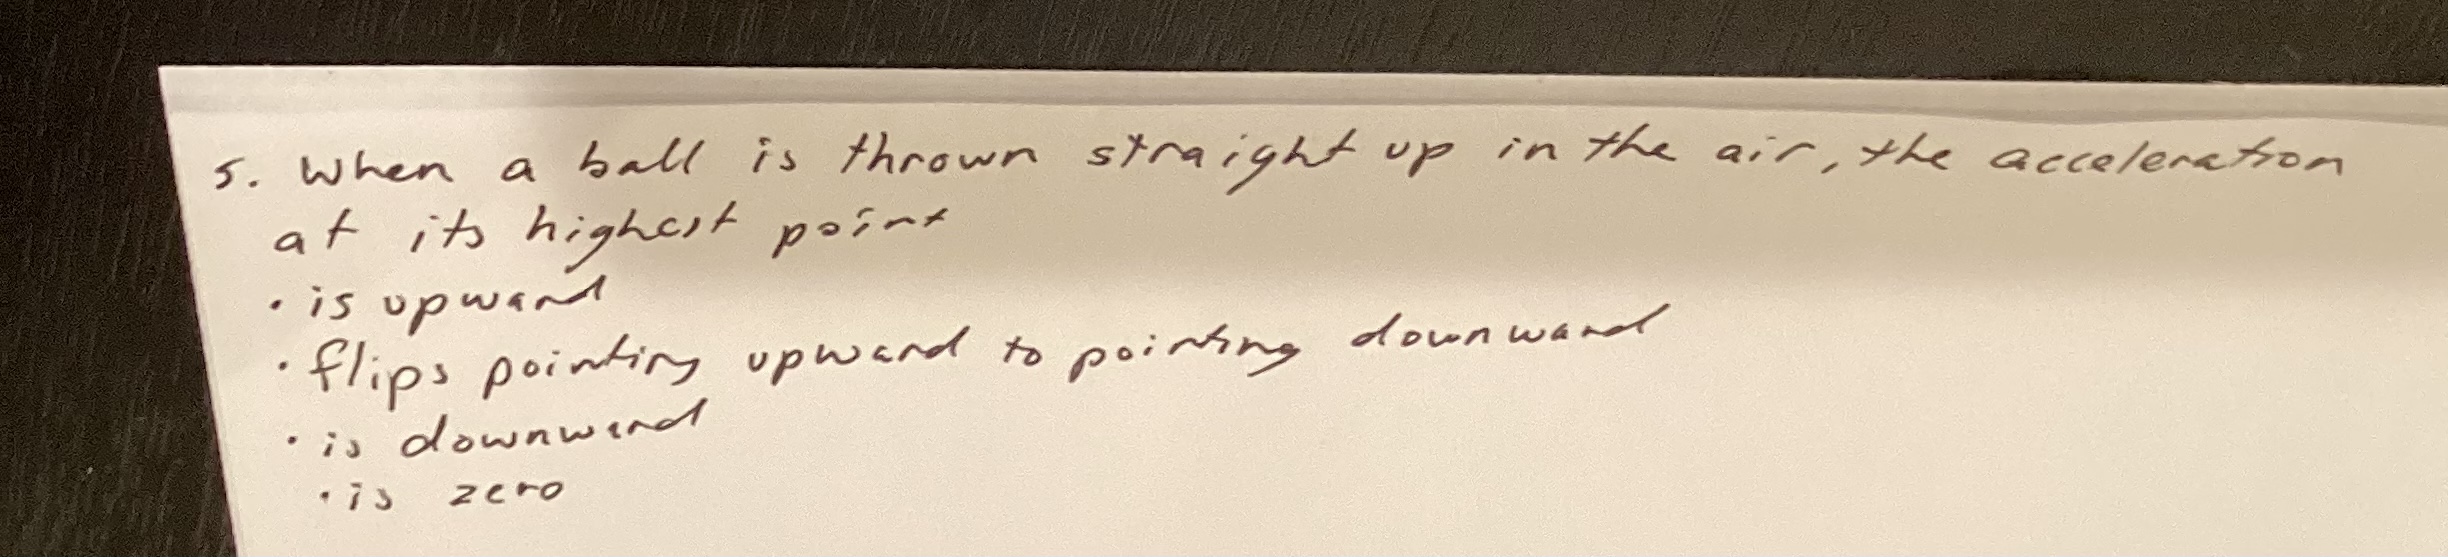 5. When a ball is thrown straight up in the air, the acceleration
at its highest point
• is upward
• flips pointing upward to pointing downward
• is downward
• is zero